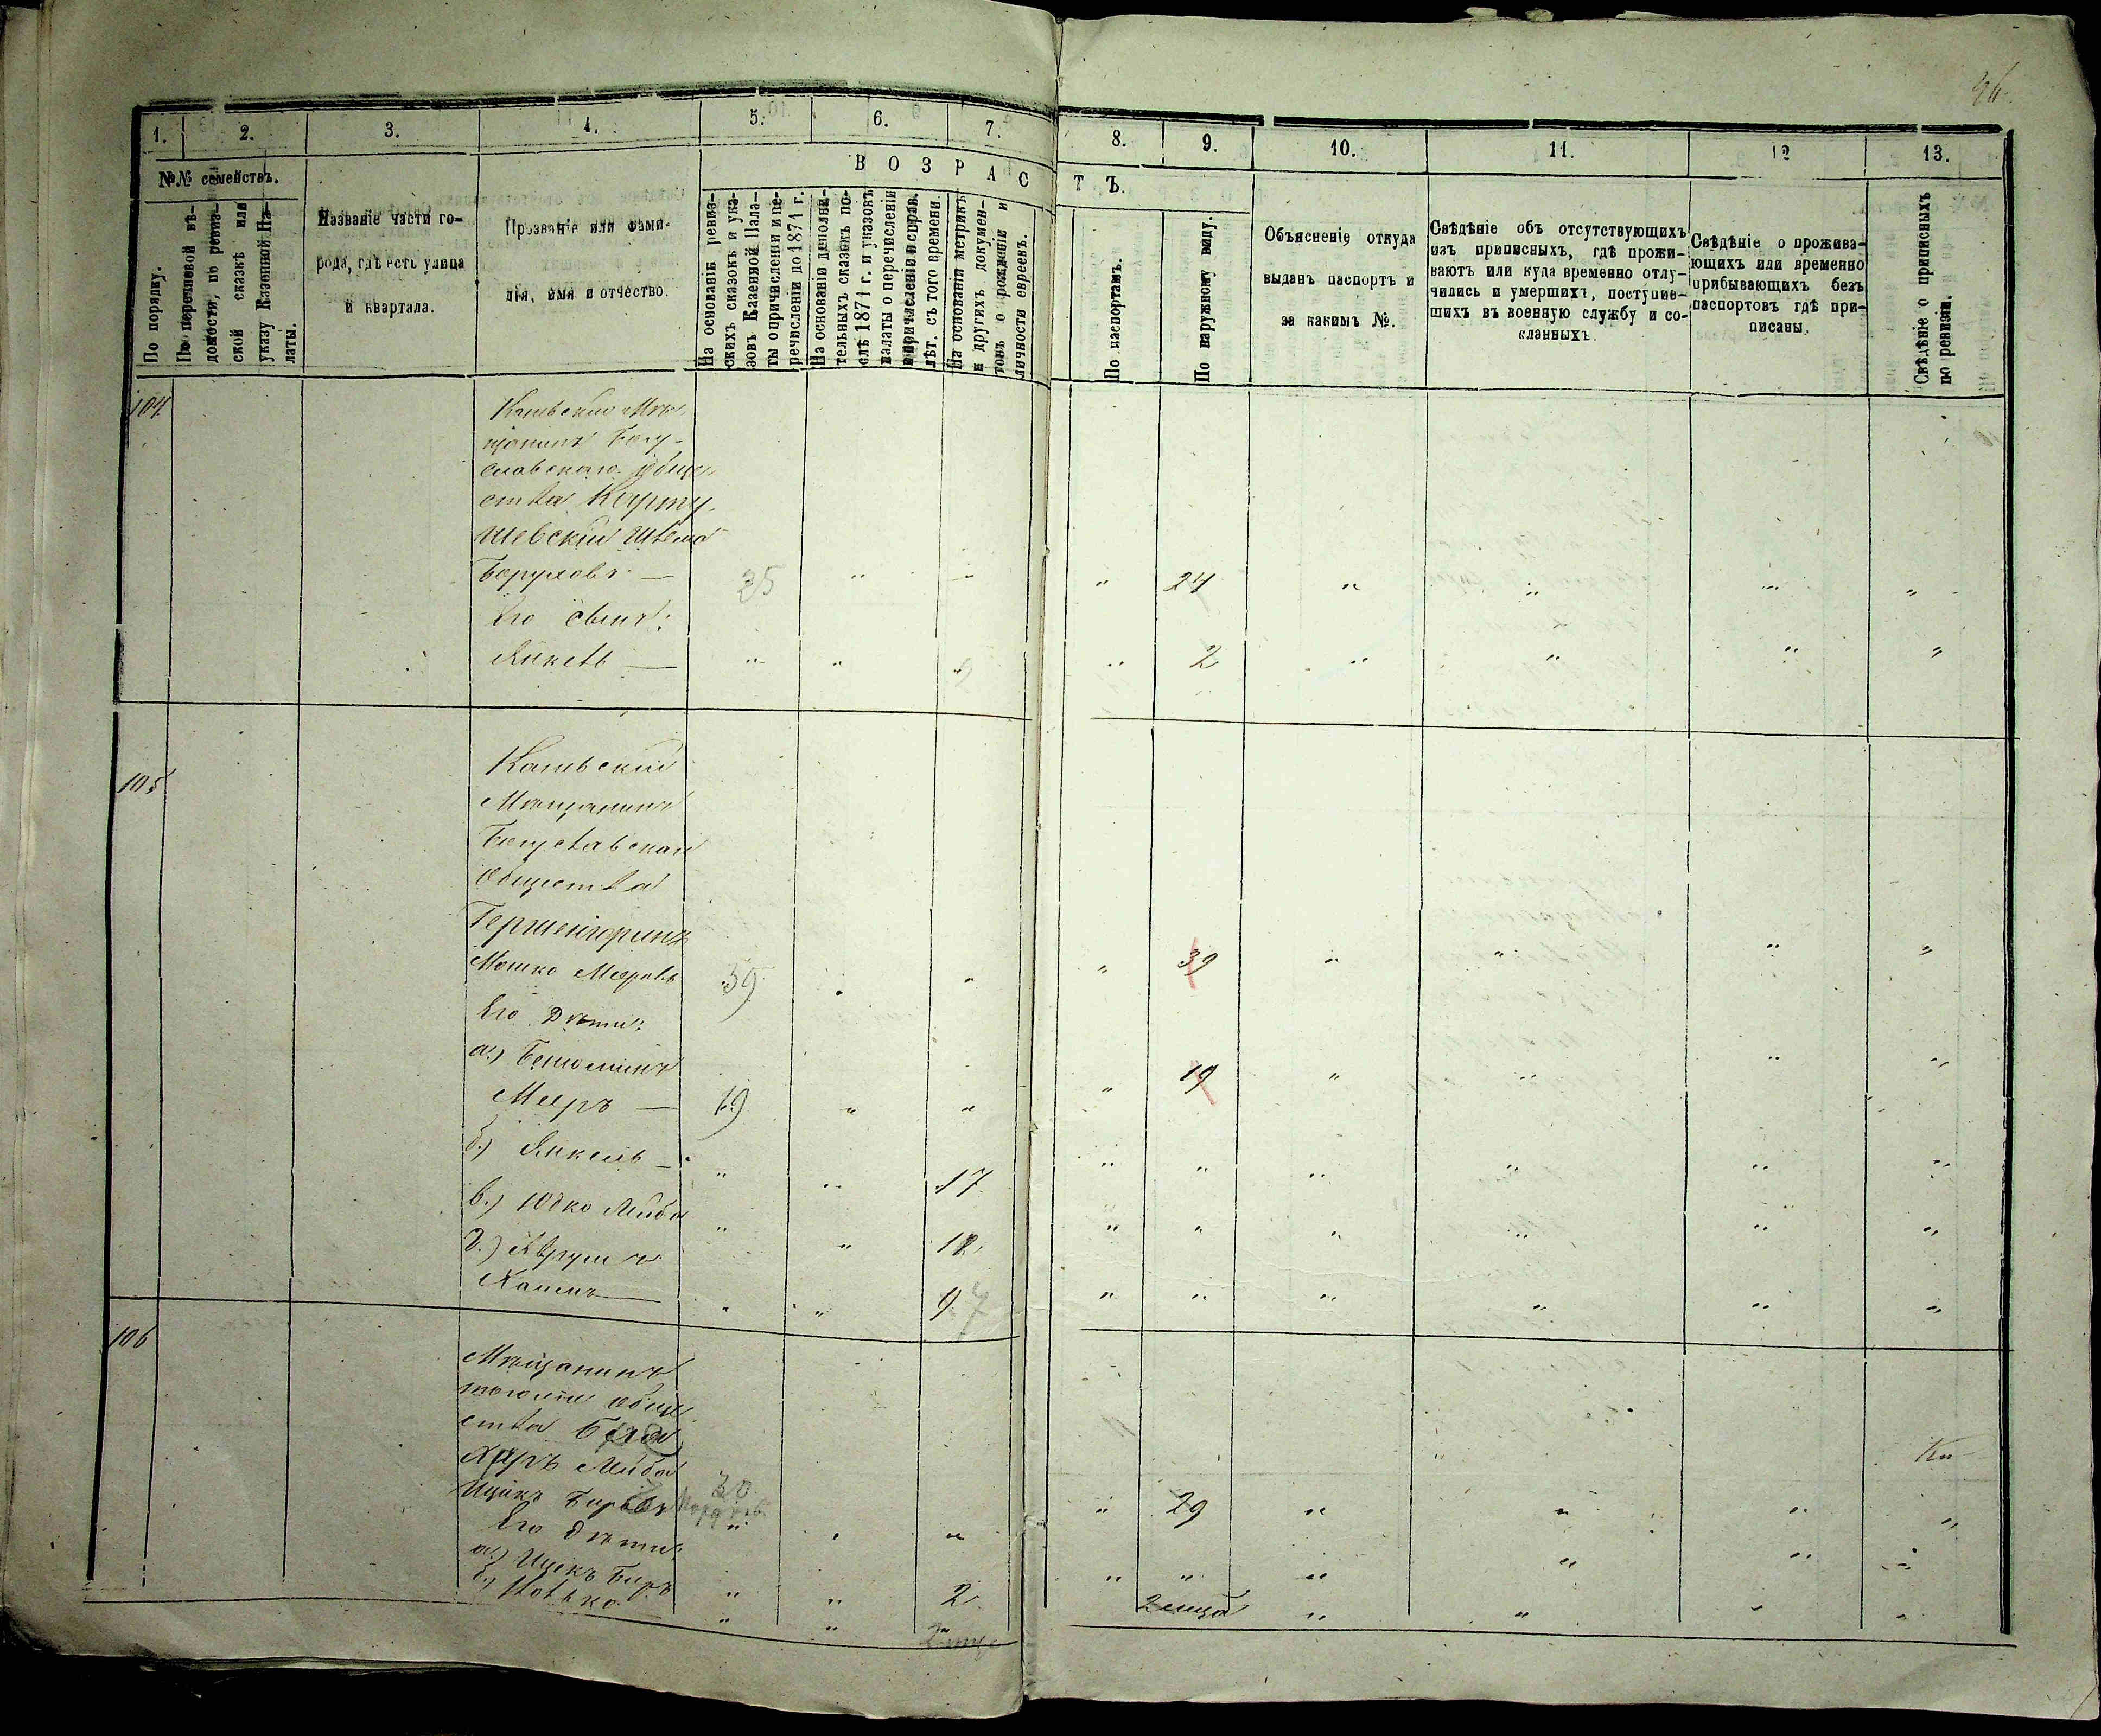 96.
1. 2. 3. 4. 5. 6. 7. 8. 9. 10. 11. 12 13.
№№ семействъ.
В О З Р А С Т Ъ.
По порядку.
По перечневой вѣ-
домости, по ревиз-
ской сказкѣ или
указу Казенной Па-
латы.
Названіе части го-
рода, гдѣ есть улица
и квартала.
Прозваніе или фами-
лія, имя и отчество.
На основаніѣ ревиз-
скихъ сказокъ и ука-
зовъ Казенной Пала-
ты о причисленіи и пе-
речисленіи по 1871 г.
На основаніи дополни-
тельныхъ сказокъ по-
слѣ 1871 г. и указовъ
палаты о перечисленіи
и причисленіи и справ.
лѣт. съ того времени.
На основаніи метрикъ
и другихъ докумен-
товъ о рожденіи и
личности евреевъ.
По паспортамъ.
По наружному виду.
Объясненіе откуда
выданъ паспортъ и
за какимъ №.
Свѣдѣніе объ отсутствующихъ
изъ приписныхъ, гдѣ прожи-
ваютъ или куда временно отлу-
чились и умершихъ, поступив-
шихъ въ военную службу и со-
сланныхъ.
Свѣдѣніе о прожива-
ющихъ или временно
прибывающихъ безъ
паспортовъ гдѣ при-
писаны.
Свѣдѣніе о приписныхъ
по ревизіи.
104
Каневскій Мѣ-
щанинъ Богу-
славскаго обще-
ства
шевскій
Боруховъ — 35 " " " 24 " " " "
Его сынъ:
Янкель — " " 2 " 2 " " " "
105
Каневскій
Мѣщанинъ
Богуславскаго
общества
Мошко Мееровъ 39 " " " 39 " " " "
Его дѣти:
а.) Беньоминъ
Мееръ — 19 " " " 19 " " " "
б.) Янкель — " " 17 " " " " " "
в.) Юдко Лейба " " 12 " " " " " "
г.) Аврумъ
Хаимъ — " " 9 7 " " " " " "
106
Мѣщанинъ
тогоже обще
ства
Лейба
Ицикъ 30 " " " 29 " " " "
Его дѣти:
а.) Ицекъ Беръ " " 2 " " " " " "
б.) " " 2 " 2 мца " " " "